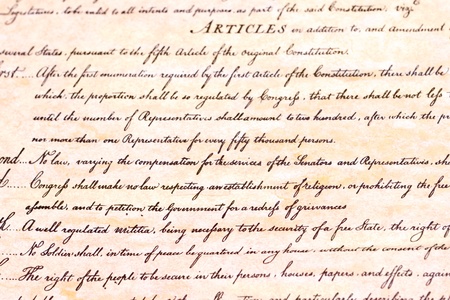 Legislatures, to be valid to all intents and purposes, as part of the said Constitution, viz.
ARTICLES in addition to, and amendment
several States, pursuant to the fifth Article of the original Constitution.
After the first enumeration required by the first Article of the Constitution, there shall be
which, the proportion shall be so regulated by Congress, that there shall be not less
until the number of Representatives shall amount to two hundred, after which the pr
nor more than one Representative for every fifty thousand persons.
ond.... No law, varying the compensation for the services of the Senators and Representatives, sha
Congress shall make no law respecting an establishment of religion, or prohibiting the free
assemble, and to petition the Government for a redress of grievances
A well regulated militia, being necessary to the security of a free State, the right of
No Soldier shall, in time of peace be quartered in any house, without the consent of the
The right of the people to be secure in their persons, houses, papers, and effects, again
and particularly describing the